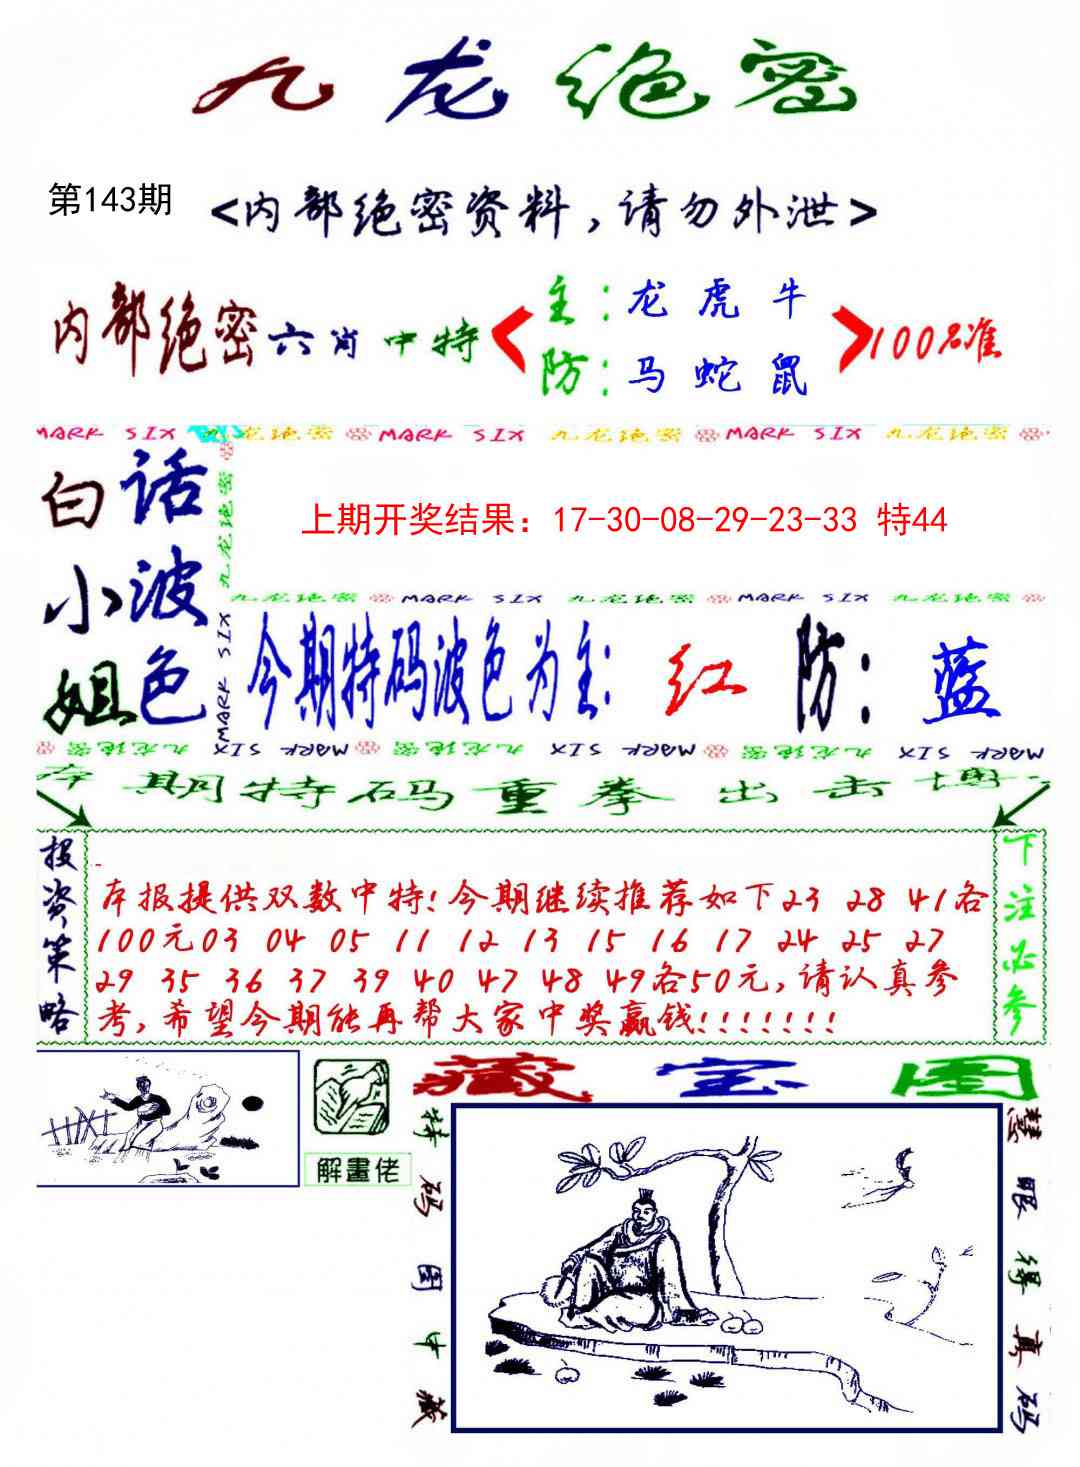 九龙绝密
第143期
<内部绝密资料,请勿外泄>
内部绝密六肖中特
主:龙 虎 牛
防:马 蛇 鼠
100%准
MARK SIX 九龙绝密 MARK SIX 九龙绝密 MARK SIX 九龙绝密
白话
小波
姐色
九龙绝密
MARK SIX
上期开奖结果: 17-30-08-29-23-33 特44
九龙绝密 MARK SIX 九龙绝密 MARK SIX 九龙绝密
今期特码波色为主: 红 防: 蓝
九龙绝密 MARK SIX 九龙绝密 MARK SIX 九龙绝密 MARK SIX
本期特码重拳出击博
投资策略
本报提供双数中特!今期继续推荐如下23 28 41各
100元03 04 05 11 12 13 15 16 17 24 25 27
29 35 36 37 39 40 47 48 49各50元,请认真参
考,希望今期能再帮大家中奖赢钱!!!!!!!
下注必参
解畫佬
藏宝图
特码图中藏
慧眼得真码